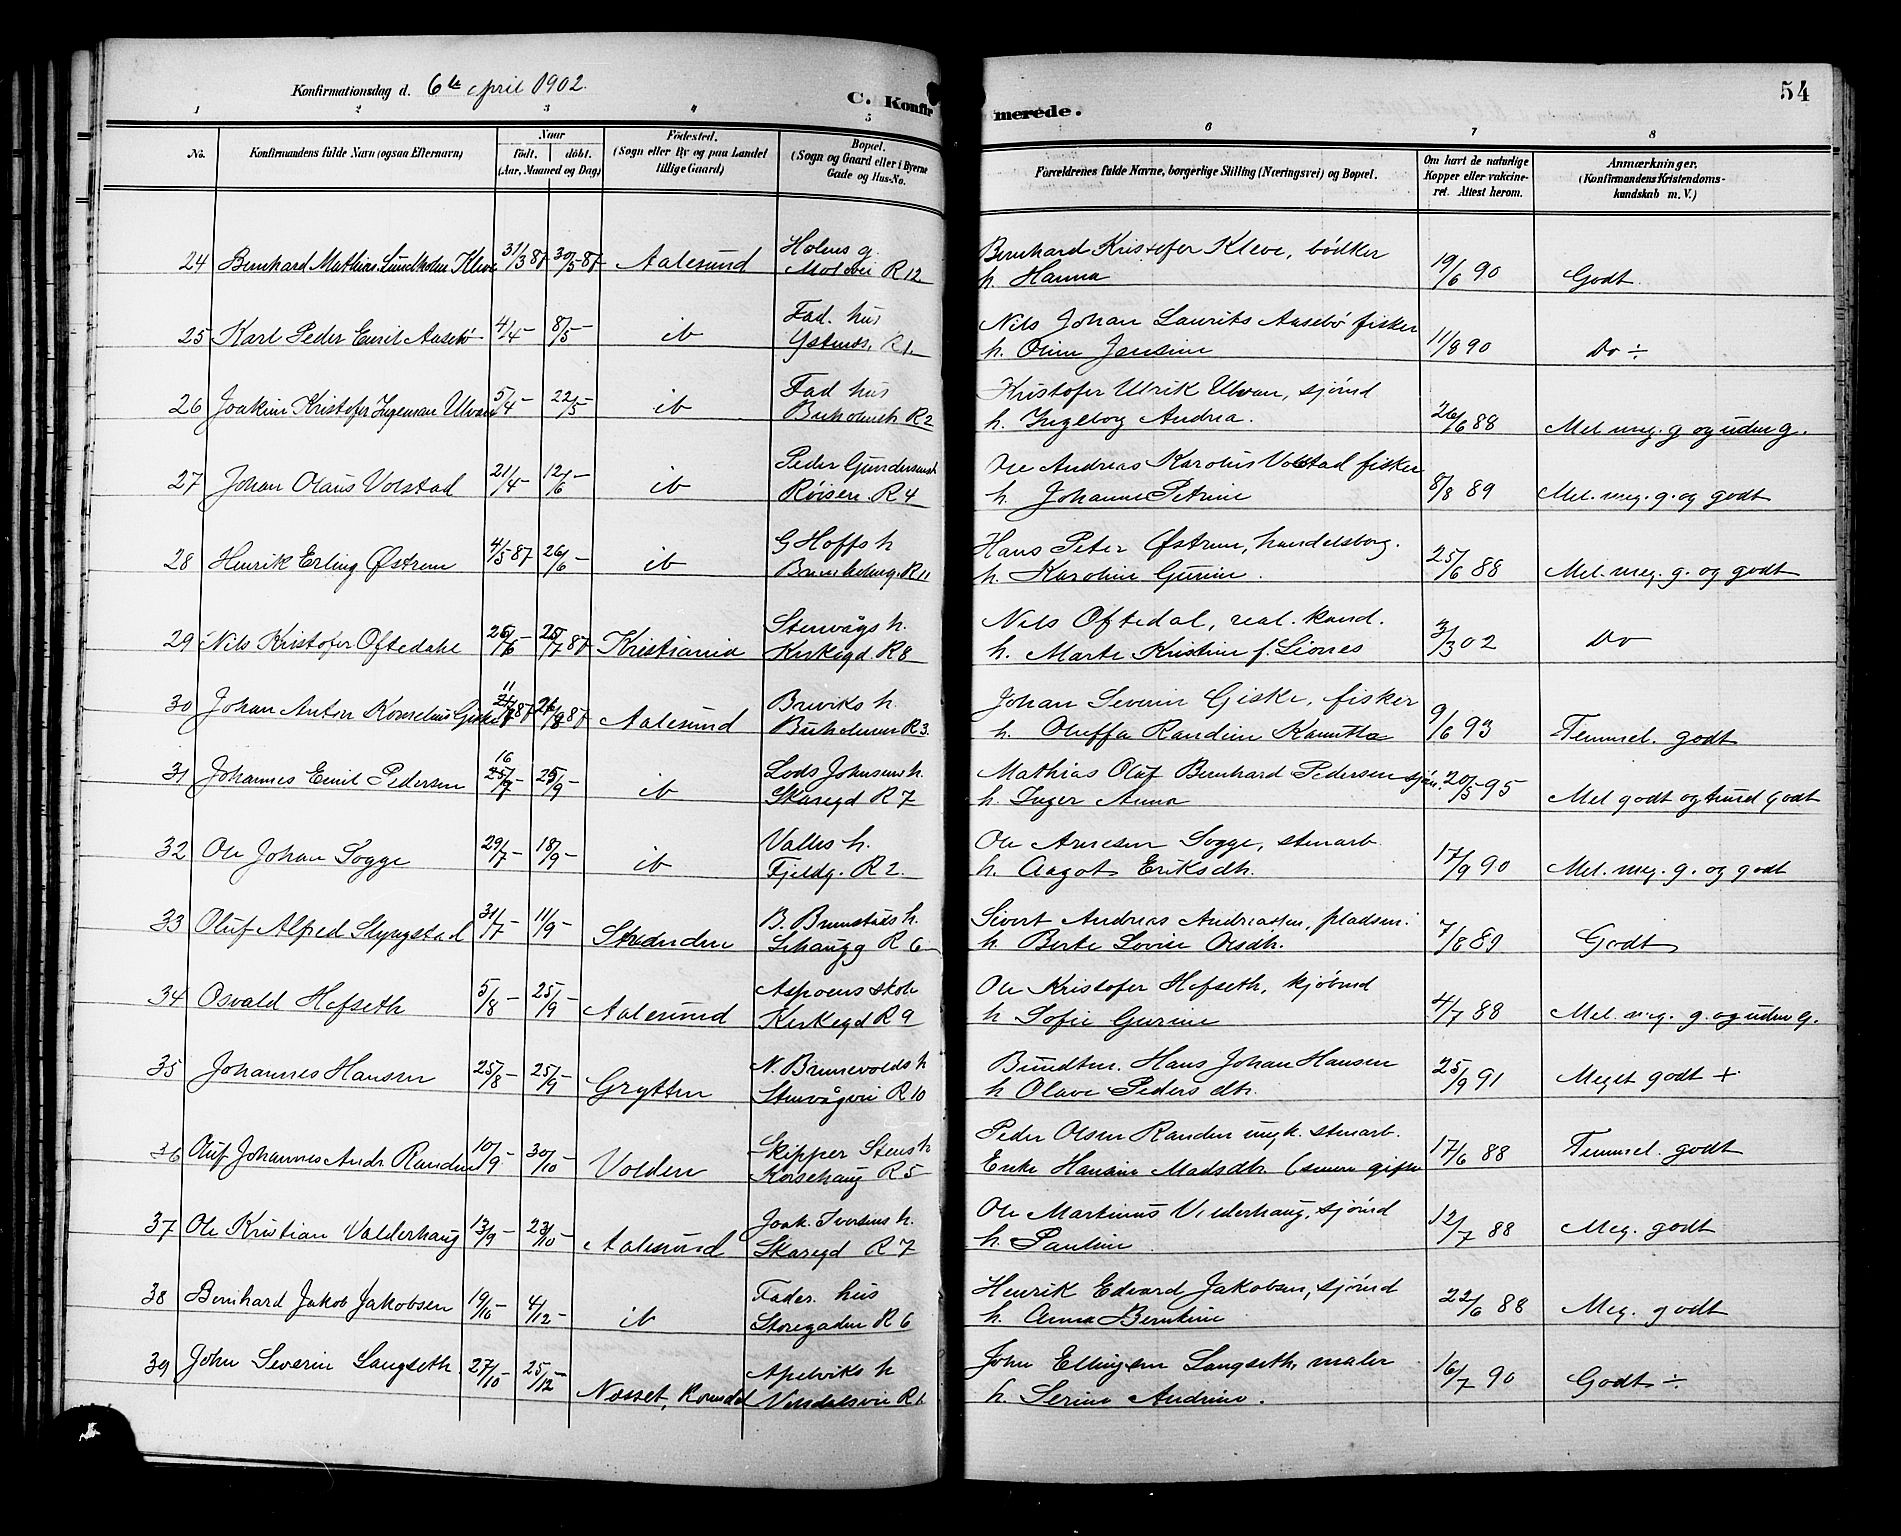 54
Konfirmationsdag d. 6te april 1902.
C. Konfirmerede.
1 2 3 4 5 6 7 8
No.
Konfirmandens fulde Navn (ogsaa Efternavn)
Naar
født. døbt.
(Aar, Maaned og Dag)
Fødested.
(Sogn eller By og paa Landet
tillige Gaard)
Bopæl.
(Sogn og Gaard eller i Byerne
Gade og Hus-No.
Forældrenes fulde Navne, borgerlige Stilling (Næringsvei) og Bopæl.
Om havt de naturlige
Kopper eller vakcine-
ret. Attest herom.
Anmærkninger.
(Konfirmandens Kristendoms-
kundskab m. V.)
24 Bernhard Mathias Lundholm Kleve 31/3 87 30/5 87 Aalesund
Holens g
Molovei R 12
Bernhard Kristofer Kleve, bødker
h. Hanna
19/6 90 Godt.
25 Karl Peder Emil Aasebø 4/4 – 8/5 – ib
Fad. hus
R 1.
Nils Johan Laurits Aasebø fisker
h. Oline Jensine
11/8 90 Do ÷
26 Joakim Kristofer Ingeman Ulvan 5/4 – 22/5 – ib
Fad hus
Buholmsh R2
Kristofer Ulrik Ulvan, sjømd
h. Ingeborg Andrea.
26/6 88 Mel. meg. g og uden g.
27 Johan Olaus Volstad 21/4 – 12/6 – ib
Peder Gundersensh
Røisen. R 4
Ole Andreas Karolus Volstad fisker
h. Johanne Petrine
8/8 89 Mel. meg. g. og godt
28 Henrik Erling Østrem 4/5 87 26/6 – ib
G Hoffs h
R11
Hans Peter Østrem, handelsborg.
h. Karoline Gurine.
25/6 88 Mel. meg. g. og godt
29 Nils Kristofer Oftedahl 25/7 87 Kristiania
Stenvågs h.
Kirkegd. R 8
Nils Oftedal, real. kand.
h. Marte Kristine f. Lionæs
3/3 02 Do
30 Johan Anton Kornelius Giske 11 87 26/8 87 Aalesund
Breviks h.
Buholmen R 3.
Johan Severin Giske, fisker
h. Oluffa Randine Kanutta
9/6 93 Temmel. godt
31 Johannes Emil Pedersen 16 25/7 – 25/9 – ib
Lods Johnsens h.
Skaregd R 7
Mathias Oluf Bernhard Pedersen sjøm.
h. Inger Anna
20/5 95 Mel godt og tmd godt
32 Ole Johan Sogge 29/7 – 18/9 – ib
Valles h.
Fjeldg. R 2.
Ole Arnesen Sogge, stenarb
h. Aagot Eriksdtr.
17/9 90 Mel. meg. g. og godt
33 Oluf Alfred Slyngstad 31/7 – 11/9 –
B. Brunstads h.
R 6
Sivert Andreas Andreassen, pladsm.
h Berte Lovise Olsdtr.
7/8 89 Godt
34 Osvald Hofseth 5/8 – 25/9 – Aalesund
Aspøens skole
Kirkegd R 9
Ole Kristofer Hofseth, kjøbmd
h. Sofie Gurine
4/7 88 Mel. meg. g. og uden g.
35 Johannes Hansen 25/8 – 25/9 – Grytten
N. Brunevolds h
Stenvågvei R 10
Bundtm. Hans Johan Hansen
h Olave Pedersdtr.
25/9 91 Meget godt +
36 Oluf Johannes Andr. Randen 10/9 – 30/10 – Volden
Skipper Stens h
Korsehaug R 5
Peder Olsen Randen ungk. stenarb.
Enke Hansine Madsdtr (senere gifte
17/6 88 Temmel. godt
37 Ole Kristian Valderhaug 13/9 – 23/10 – Aalesund
Joak. Iversens h.
Skaregd R 7
Ole Martinus Valderhaug, sjømd
h. Pauline
12/7 88 Meg. godt
38 Bernhard Jakob Jakobsen 19/10 – 4/12 – ib
Fader. hus
Storegaden R 6
Henrik Edvard Jakobsen, sjømd
h. Anna Berntine
22/6 88 Meg. godt
39 John Severin Langseth 27/10 – 25/12 – Nesset, Romsdal
Apelviks h
R 1
John Ellingsen Langseth, maler
h. Serine Andrine.
16/7 90 Godt ÷